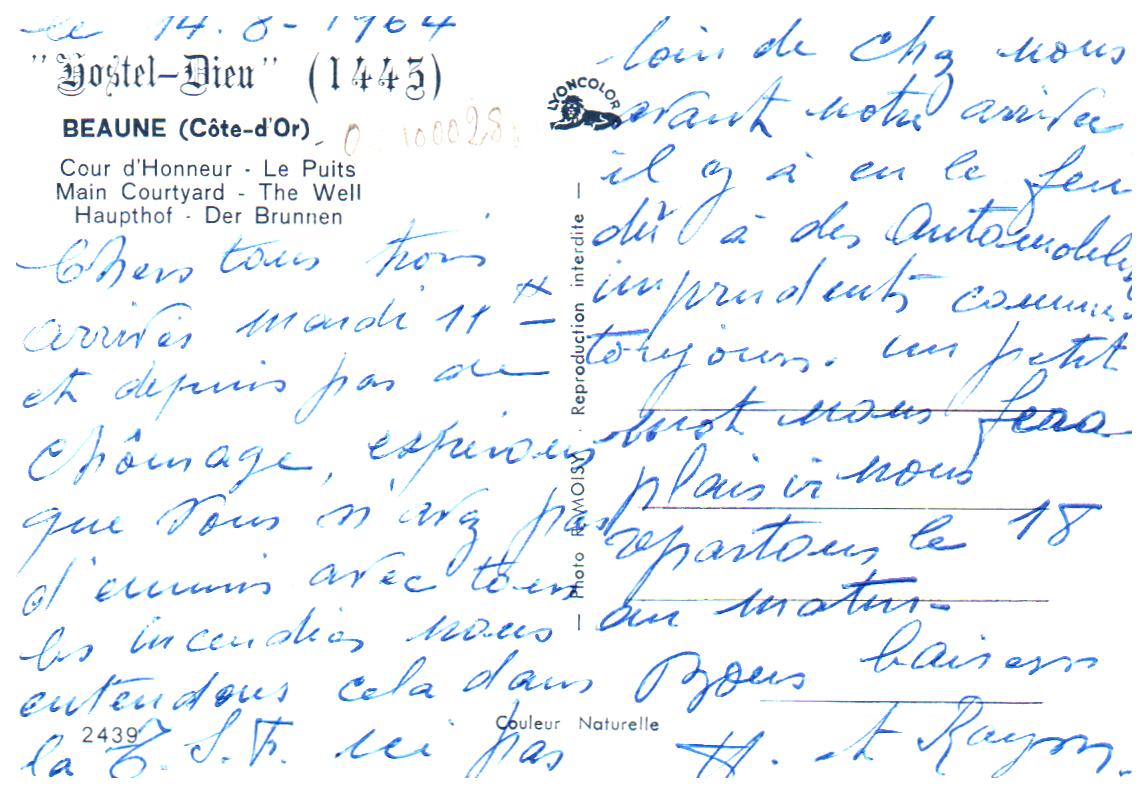 le 14.8-1964
"Hostel-Dieu" (1443)
BEAUNE (Côte-d'Or)
Cour d'Honneur - Le Puits
Main Courtyard - The Well
Haupthof - Der Brunnen
Chers tous trois
arrivés mardi 11
et depuis pas de
chômage, espérons
que vous n'avez pas
d'ennuis avec tous
les incendies nous
entendons cela dans
la T.S.F. ici pas
2439
LYONCOLOR
Photo REMOISY - Reproduction interdite
Couleur Naturelle
loin de chez nous
avant notre arrivée
il y à eu le feu
dû à des automobiles
imprudents comme
toujours. un petit
mot nous fera
plaisir nous
repartons le 18
au matin-
Bons baisers
H. et Raym.